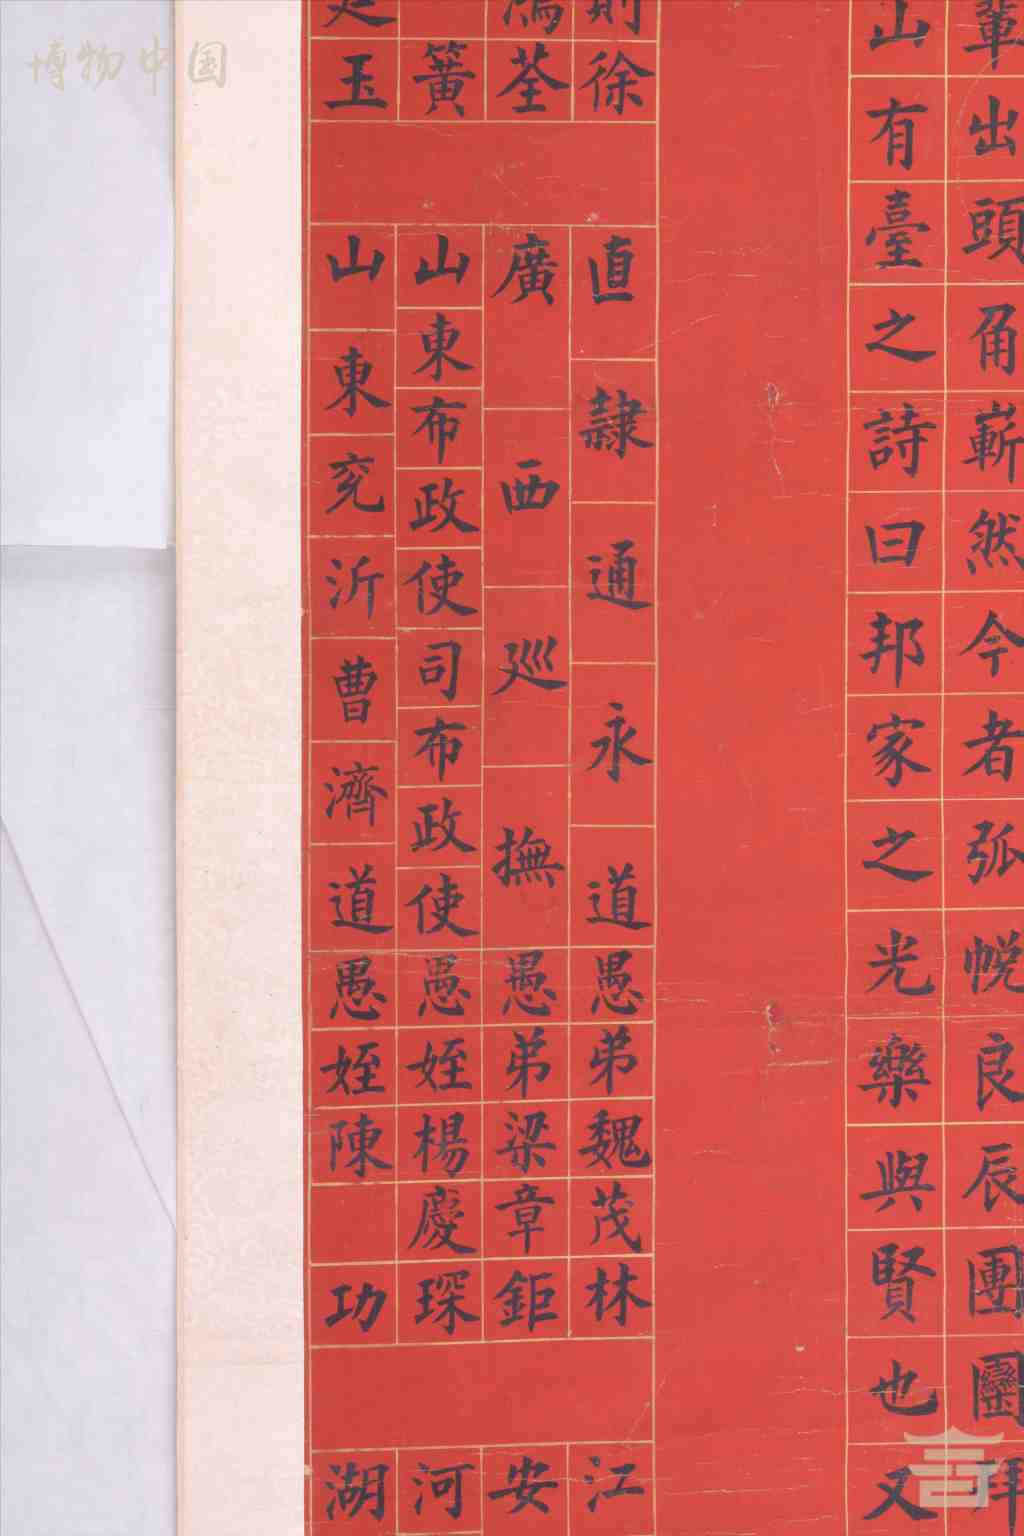 博物中国
輩出頭角嶄然今者弧帨良辰團圞拜
山有臺之詩曰邦家之光樂與賢也又
則徐
直隸通永道愚弟魏茂林
江
鴻荃
廣西巡撫愚弟梁章鉅
安
簧
山東布政使司布政使愚姪楊慶琛
河
廷玉
山東兖沂曹濟道愚姪陳功
湖